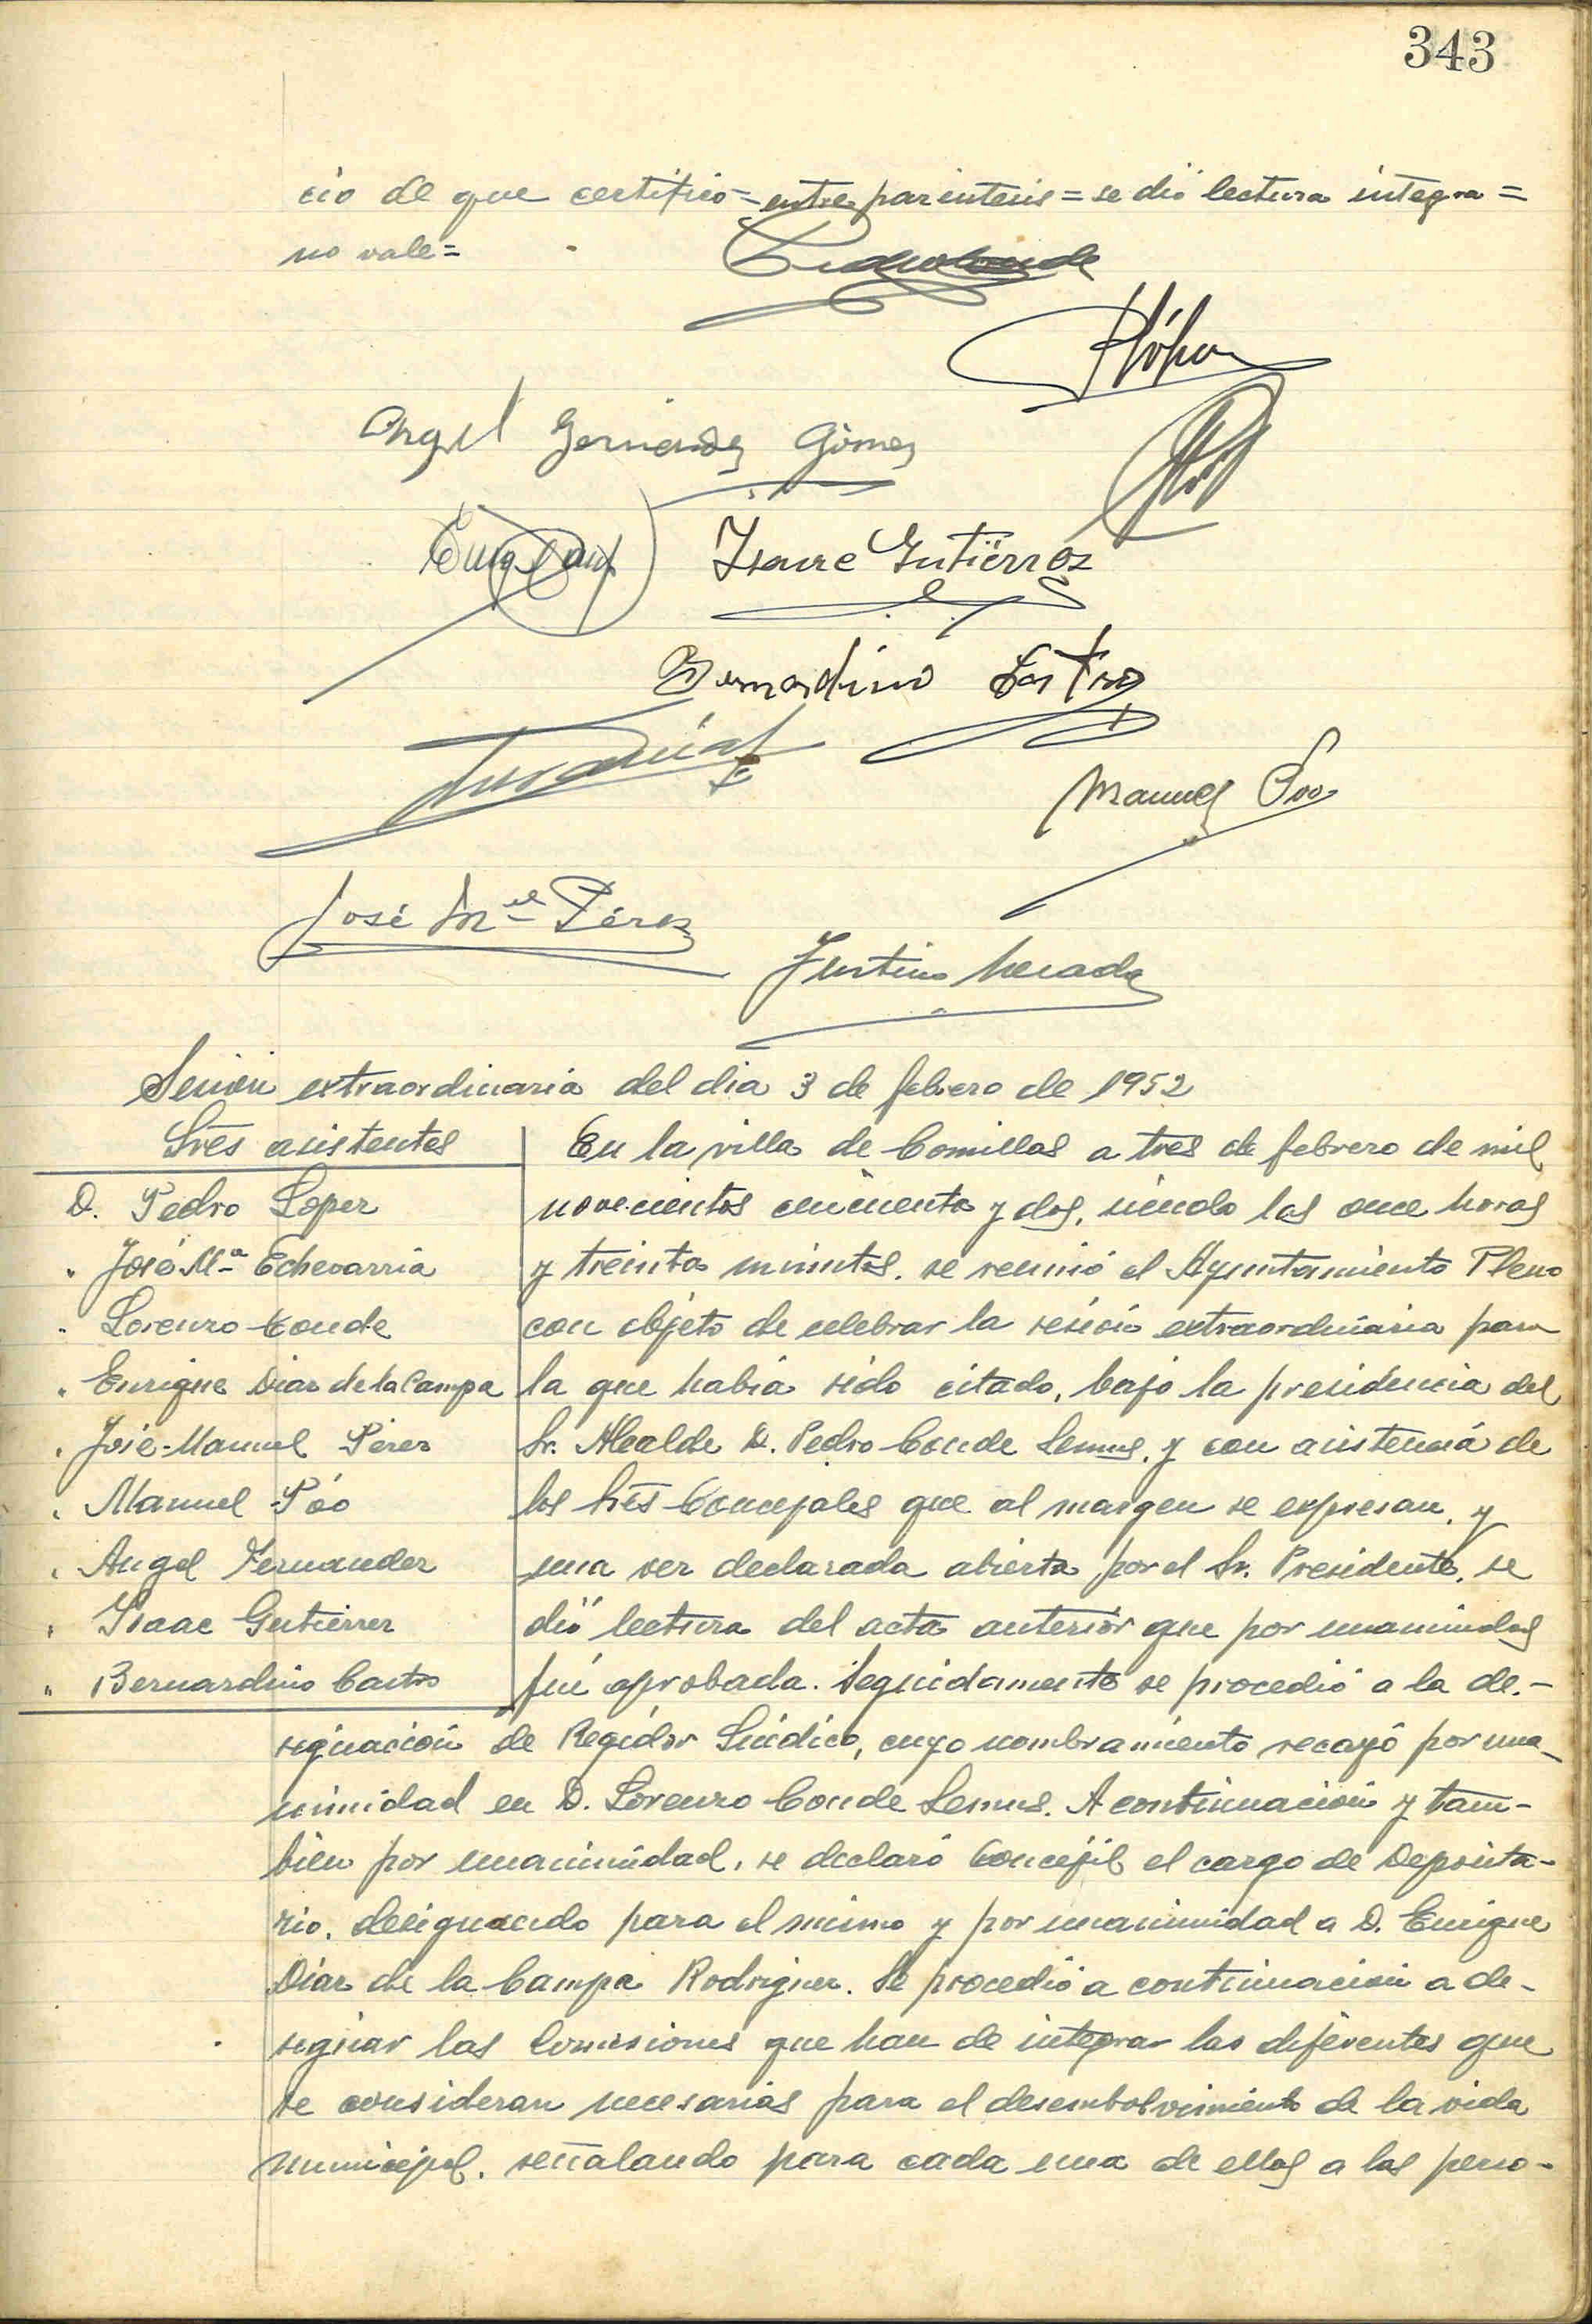 343
cio de que certifico = entre parintesis = se dió lectura integra =
no vale =
Pedro Conde
Angel Fernández Gómez
Isaac Gutiérrez
Bernardino Castro
Manuel Póo
José Mel Pérez
Justino
Sesión extraordinaria del dia 3 de febrero de 1952
Sres asistentes
D. Pedro Lopez
" José Mª Echevarria
" Lorenzo Conde
" Enrique Diaz de la Campa
" José-Manuel Pérez
" Manuel Póo
" Angel Fernandez
" Isaac Gutierrez
" Bernardino Castro
En la villa de Comillas a tres de febrero de mil
novecientos cincuenta y dos, siendo las once horas
y treinta minutos, se reunió el Ayuntamiento Pleno
con objeto de celebrar la sesión extraordinaria para
la que habia sido citado, bajo la presidencia del
Sr. Alcalde D. Pedro Conde Lemus, y con asistencia de
los Sres Concejales que al margen se expresan, y
una vez declarada abierta por el Sr. Presidente, se
dió lectura del acta anterior que por unanimidad
fué aprobada. Seguidamente se procedió a la de-
signación de Regidor Sindico, cuyo nombramiento recayó por una-
nimidad en D. Lorenzo Conde Lemus. A continuación y tam-
bien por unanimidad, se declaró Concejil el cargo de Deposita-
rio, designando para el mismo y por unanimidad a D. Enrique
Diaz de la Campa Rodriguez. Se procedió a continuación a de-
signar las Comisiones que han de integrar las diferentes que
se consideran necesarias para el desembolvimiento de la vida
municipal, señalando para cada una de ellas a las perso-